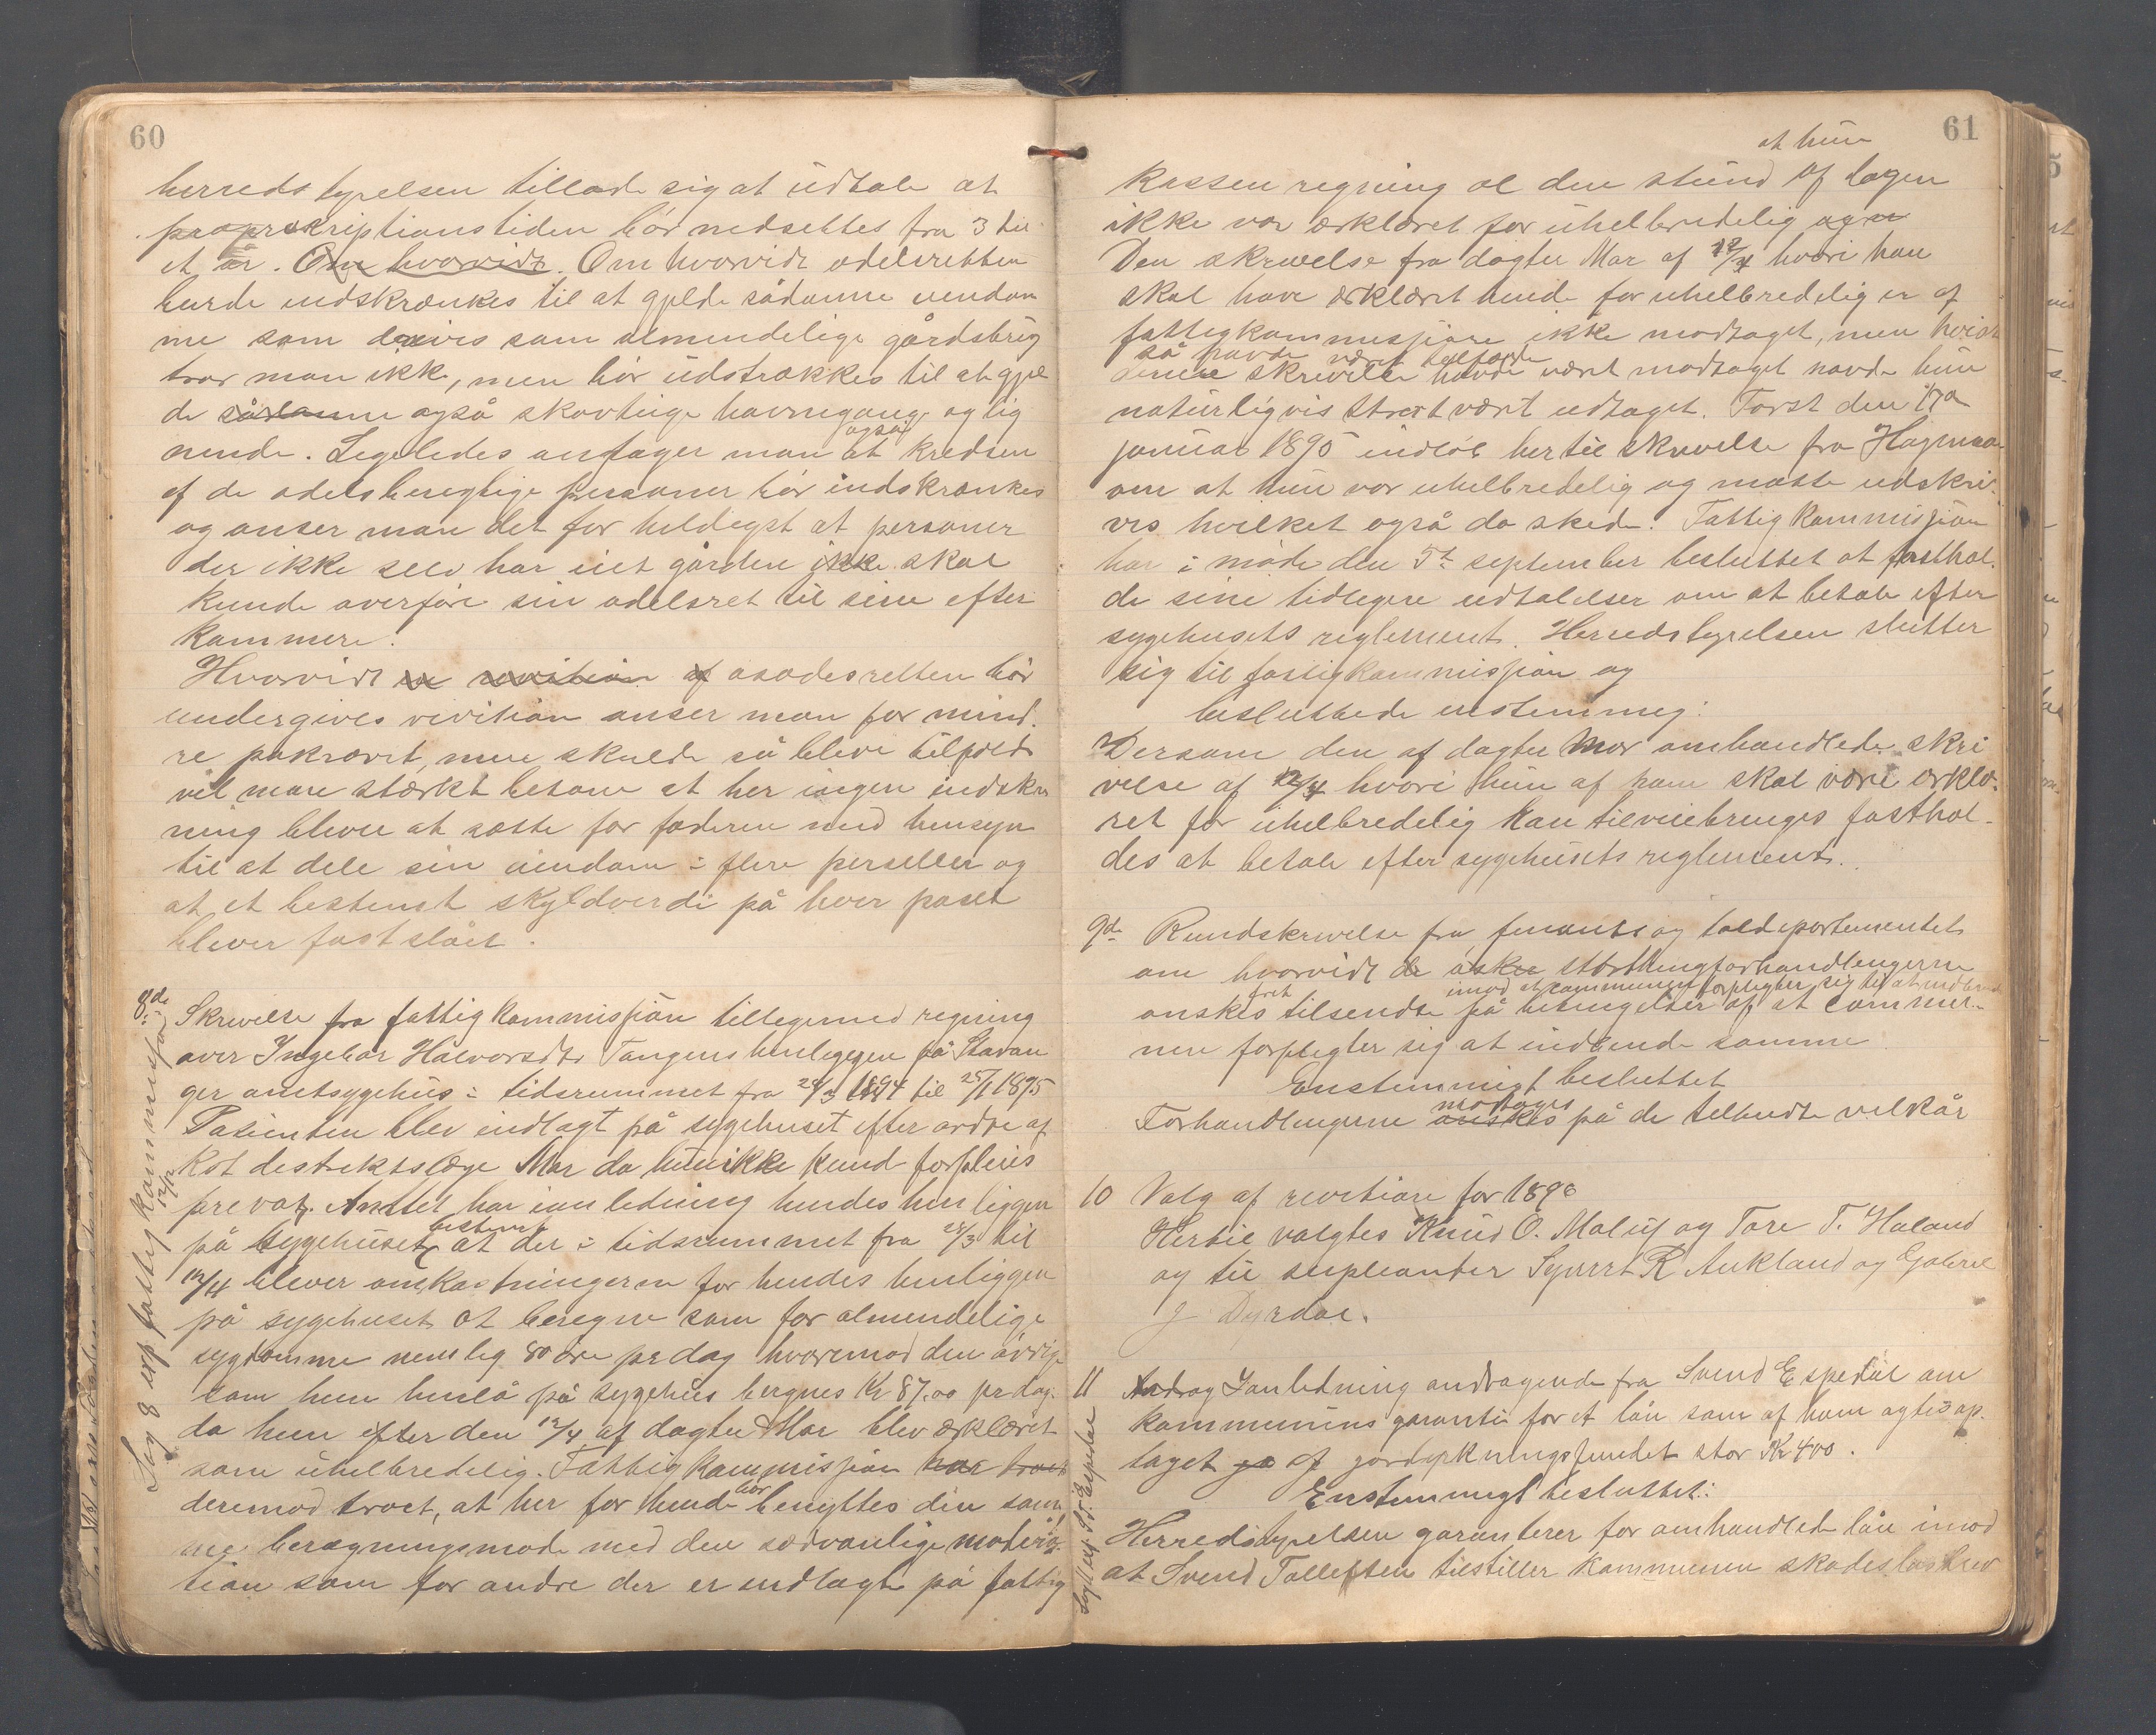 60
herredstyrelsen tillade sig at udtale at
præskriptionstiden bør nedsettes fra 3 til
et år. Om hvorvidt. Om hvorvidt odelsretten
burde indskrænkes til at gjelde sådanne eiendom
me som drives som almindelige gårdsbrug
tror man ikke, men bør udstrækkes til at gjel
de sådanne også skovteige havnegange og lig
nende. Ligeledes antager man også at kredsen
af de odelsberegtige personer bør indskrænkes
og anser man det for heldigst at personer
der ikke selv har eiet gården ikke skal
kunde overføre sin odelsret til sine efter
kommere.
Hvorvidt en revition af åsædesretten bør
undergives revition anser man for mind
re påkrævet, men skulde så blive tilfelde
vil man stærkt betone at her ingen indskr
ning blever at sætte for faderen med hensyn
til at dele sin eiendom i flere parseller og
at et bestemt skyldverdi på hver parsel
blever fastslået.
8de Skrivelse fra fattigkommissjon tilligemed regning
over Ingebor Halvorsdtr Tangens henliggen på Stavan
ger amtsygehus i tidsrummet fra 28/3 1894 til 25/1 1895
Pasienten blev indlagt på sygehuset efter ordre af
Kst destriktslæge Mar da hun ikke kund forpleies
privat. Amtet har i anledning hendes hen liggen
på sygehuset bestemt at der i tidsrummet fra 28/3 til
12/4 blever omkostningerne for hendes henliggen
på sygehuset at beregne som for almendelige
sygdomme nemlig 80 øre pr dag hvoremod den øvrige
som hun henlå på sygehus beregnes Kr 87,00 pr dag
da hun efter den 12/4 af dogter Mar blev erklæret
som uhelbredelig. Fattigkommissjon har troet
deremod troet, at her for hende bør benyttes den sam
me beregningsmåde med den sedvanlige modera
tion som for andre der er indlagte på fattig
Sag 8 exp fattigkommissjon 12/12
61
kassen regning al den stund at hun af lægen
ikke var erklæret for uhelbredelig og
Den skrivelse fra dogter Mar af 12/4 hvori han
skal have erklæret hende for uhelbredelig er af
fattigkommissjone ikke modtaget, men hvis
så havde været tilfælde
denne skrivelse havde været modtaget havde hun
naturligvis straxt vært udtaget. Først den 17a
januar 1895 indløb hertil skrivelse fra
om at hun var uhelbredelig og måtte udskri
ves hvilket også da skede. Fattigkommissjon
har i møde den 5te september besluttet at fasthol
de sine tidligere udtalelser om at betale efter
sygehusets reglement. Herredstyrelsen slutter
sig til fattigkommissjon og
besluttede enstemmig:
Dersom den af dogter Mar omhandlede skri
velse af 12/4 hvori hun af ham skal være erklæ
ret for uhelbredelig kan tilveiebringes fasthol
des at betale efter sygehusets reglement.
9de Rundskrivelse fra finants og tolddepartementet
om hvorvidt de ønske storthingforhandlingerne
imod at communen forpligter sig til at indbinde
ønskes frit tilsendte på betingelser af at commu
nen forpligter sig at indbinde samme
Enstemmigt besluttet
Forhandlingerne ønskes modtages på de tilbudte velkår
10 Valg af revitiore for 1896
Hertil valgtes Knud O. Malus og Tore T. Haland
og til supleanter Syvert R Aukland og Gabriel
J Dyrdal.
11 Andrag I anledning andragende fra Svend Espedal om
kommunens garanti for et lån som af ham agtes op
taget af jordyrkningsfondet stor Kr 400.
Enstemmigt besluttet:
Herredstyrelsen garanterer for omhandlede lån imod
at Svend Tollefsen tilstiller kommunen skadesløsbrev
Sag 11 exp. Sv. Espedal